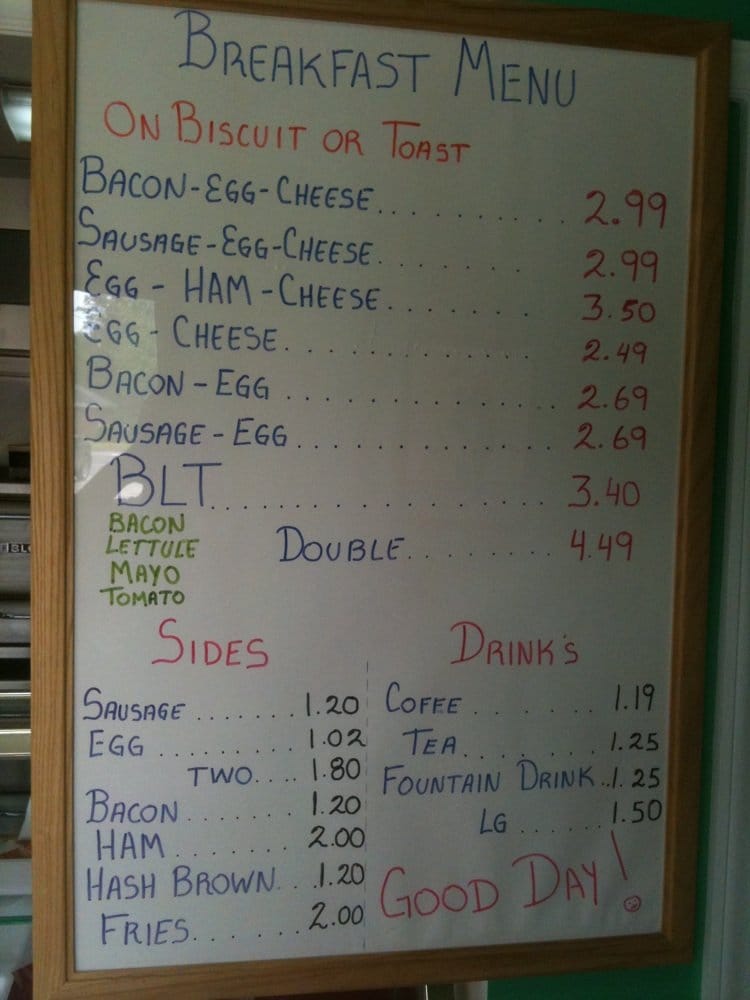 BREAKFAST MENU
ON BISCUIT OR TOAST
BACON-EGG-CHEESE.......... 2.99
SAUSAGE-EGG-CHEESE....... 2.99
EGG - HAM - CHEESE........ 3.50
EGG - CHEESE............. 2.49
BACON - EGG.............. 2.69
SAUSAGE - EGG............. 2.69
BLT.................. 3.40
BACON
LETTULE
DOUBLE......... 4.49
MAYO
TOMATO
SIDES
SAUSAGE....... 1.20
EGG.......... 1.02
TWO.... 1.80
BACON....... 1.20
HAM....... 2.00
HASH BROWN... 1.20
FRIES....... 2.00
DRINK'S
COFFE....... 1.19
TEA....... 1.25
FOUNTAIN DRINK.. 1.25
LG...... 1.50
GOOD DAY!